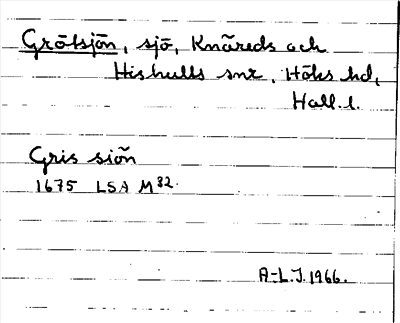 Grötsjön, sjö, Knäreds och
Hishults snr, Höks hd,
Hall. l.
Gris siön
1675 LSA M32.
A-L.J. 1966.